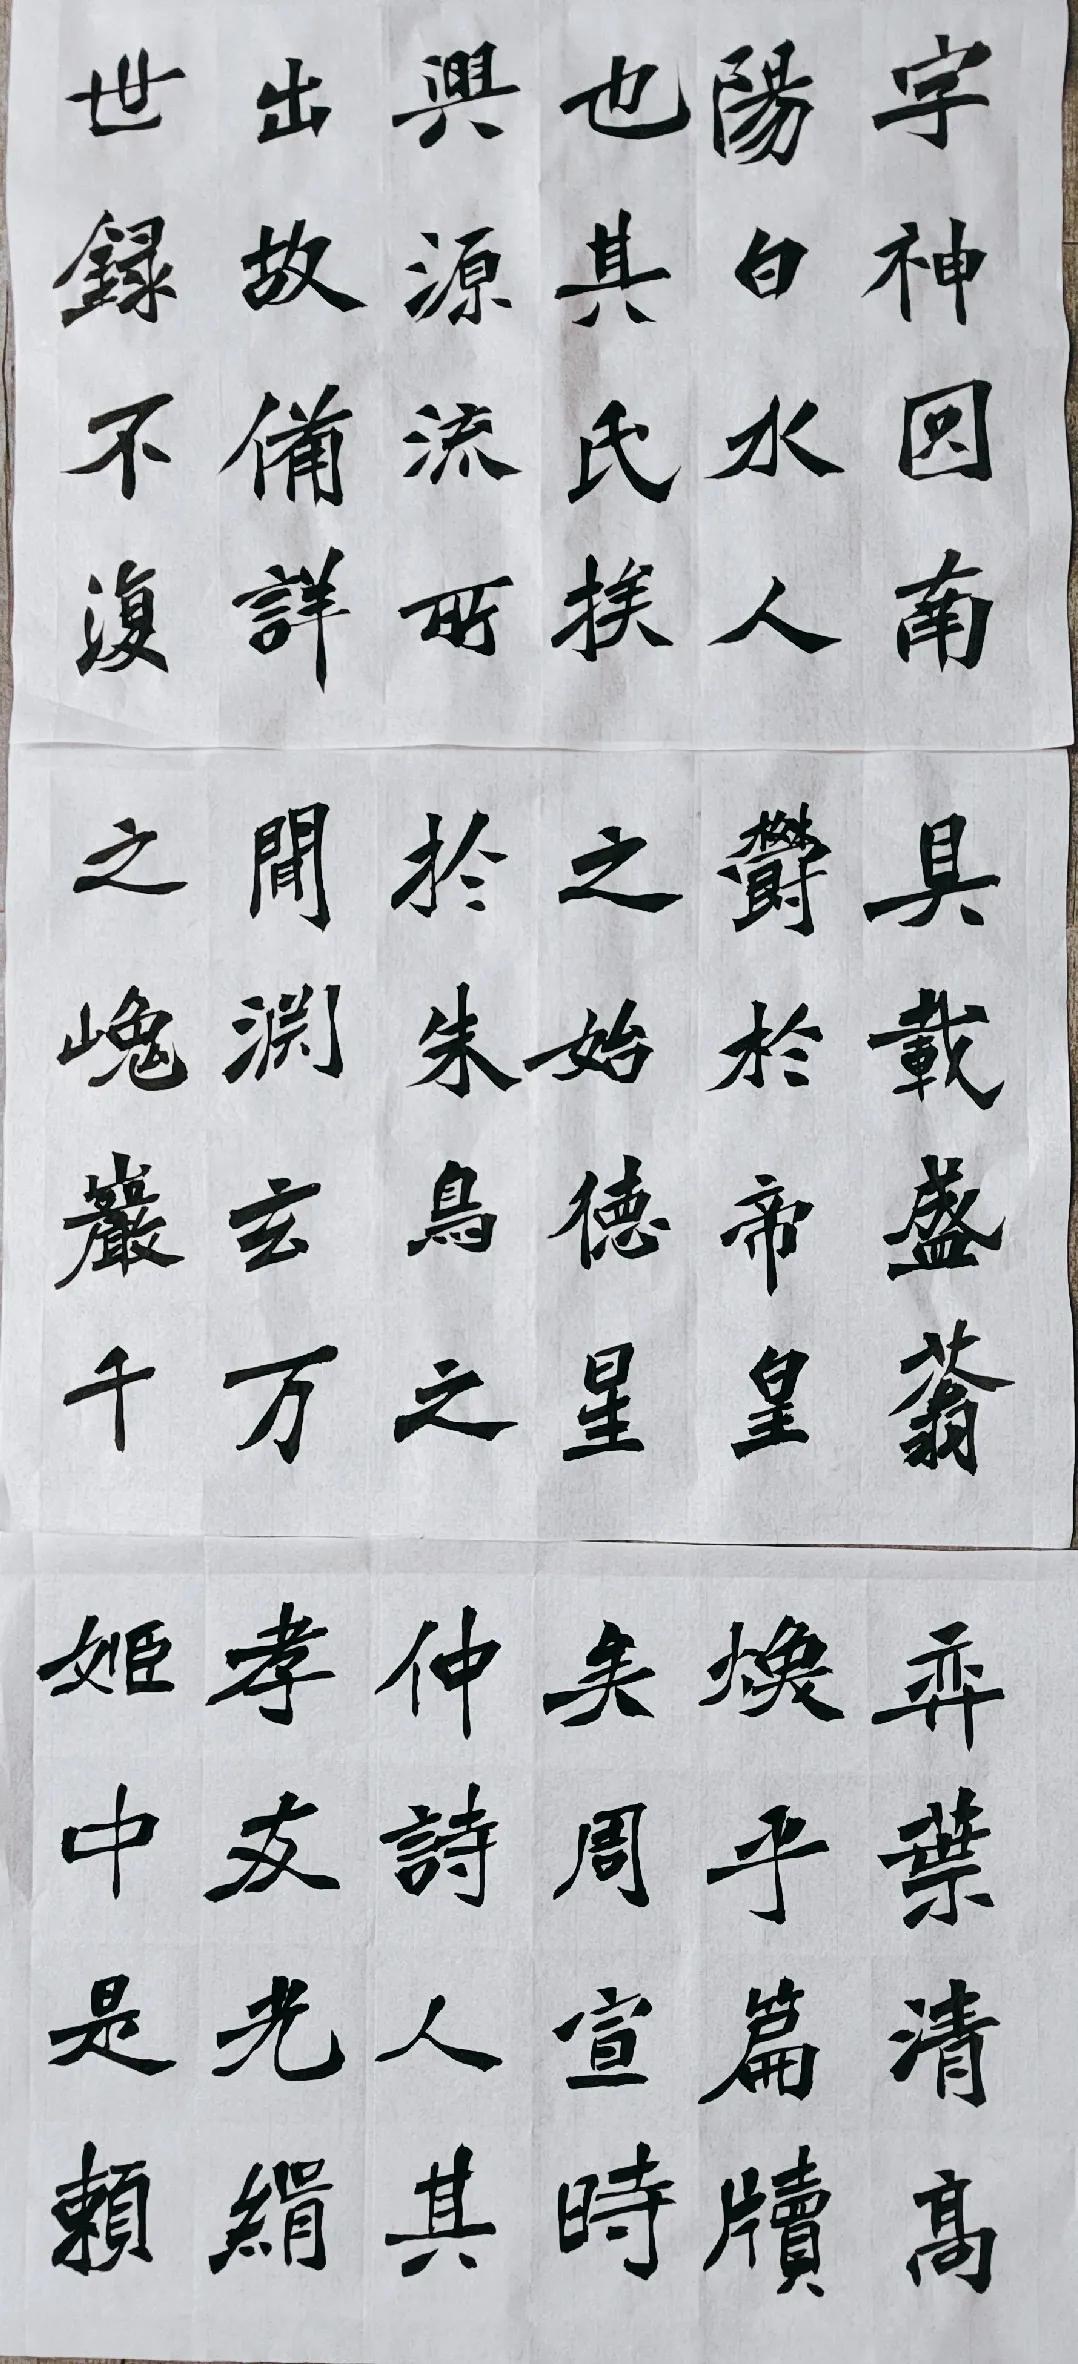 字神囧南
陽白水人
也其氏族
興源流所
出故備詳
世録不復
具載盛蓊
鬱於帝皇
之始德星
於朱鳥之
閒淵玄万
之嵬巖千
弈葉清高
煥乎篇牘
矣周宣時
仲詩人其
孝友光緝
姬中是賴